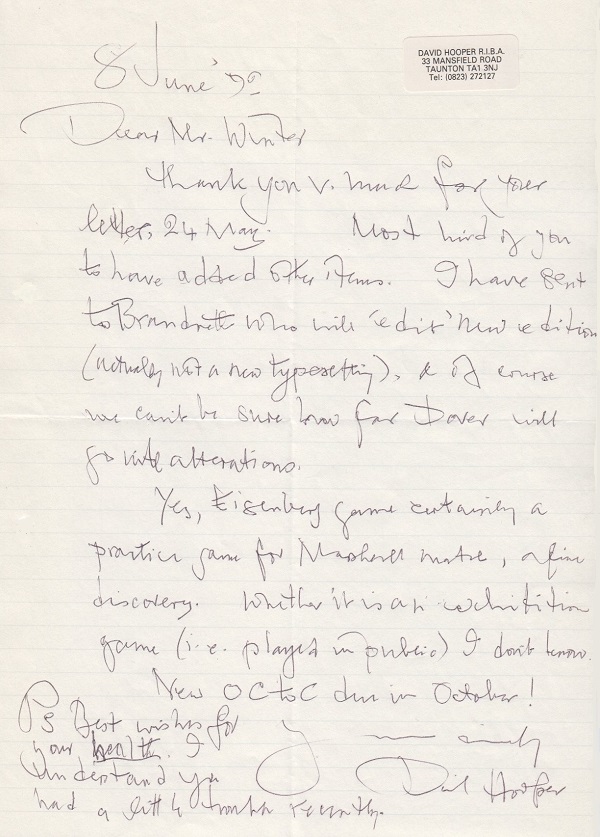 DAVID HOOPER R.I.B.A.
33 MANSFIELD ROAD
TAUNTON TA1 3NJ
Tel: (0823) 272127
8 June '92
Dear Mr. Winter
Thank you v. much for your
letter, 24 May. Most kind of you
to have added other items. I have sent
to Brandreth who will 'edit' new edition
(actually not a new typesetting), & of course
we can't be sure how far Dover will
go with alterations.
Yes, Eisenberg game certainly a
practice game for Marshall match, a fine
discovery. Whether it is an exhibition
game (i.e. played in public) I don't know.
New OCtoC due in October!
Yours sincerely
David Hooper
PS Best wishes for
your health. I
understand you
had a little trouble recently.